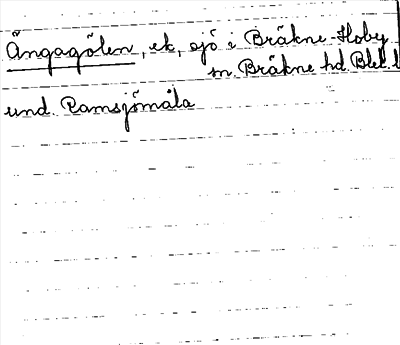 Ängagölen, ek, sjö i Bräkne-Hoby
sn. Bräkne hd. Blek. l
und. Ramsjömåla